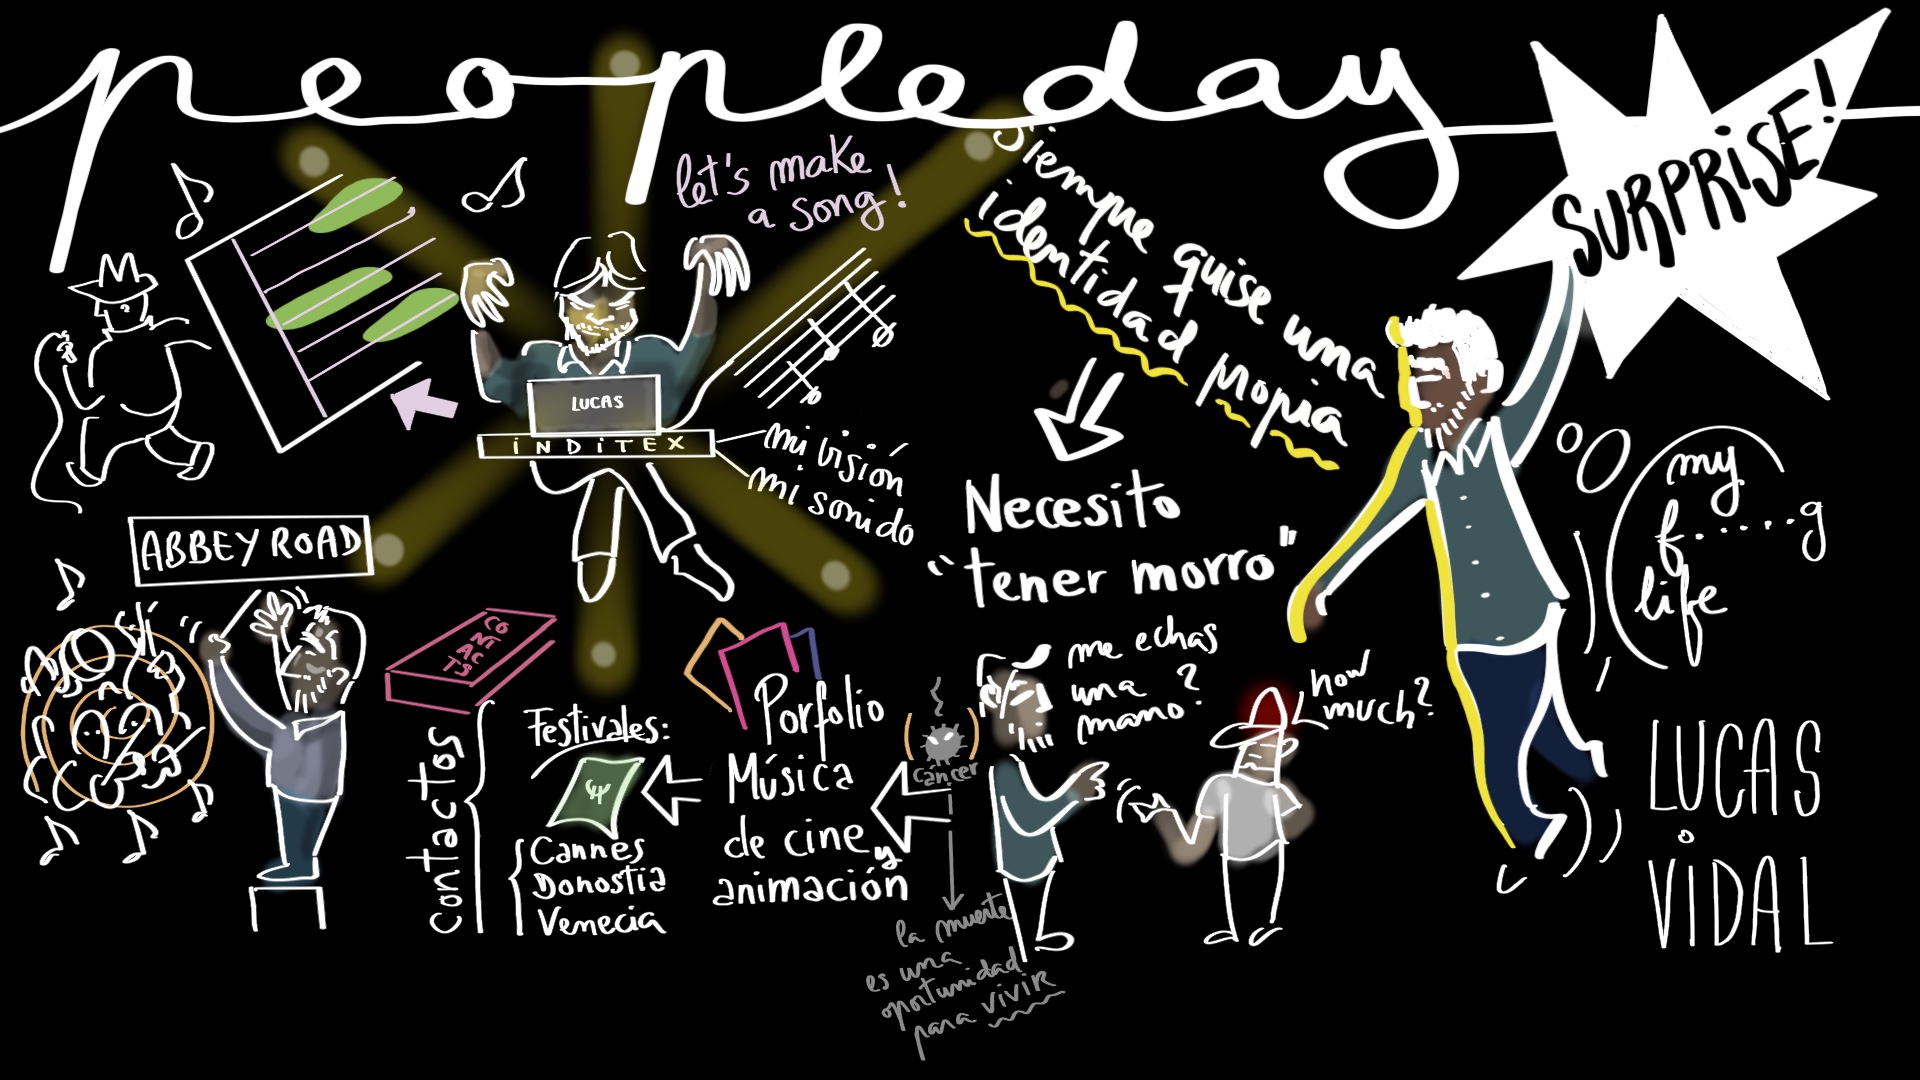 peopleday
SURPRISE!
let's make
a song!
Siempre quise una
identidad propia
LUCAS
INDITEX
mi visión
mi sonido
Necesito
"tener morro"
my
f......g
life
ABBEY ROAD
me echas
una
mano?
how
much?
CONTACTS
Contactos
Festivales:
Cannes
Donostia
Venecia
Porfolio
Música
de cine y
animación
(cáncer)
la muerte
es una
oportunidad
para vivir
LUCAS
VIDAL